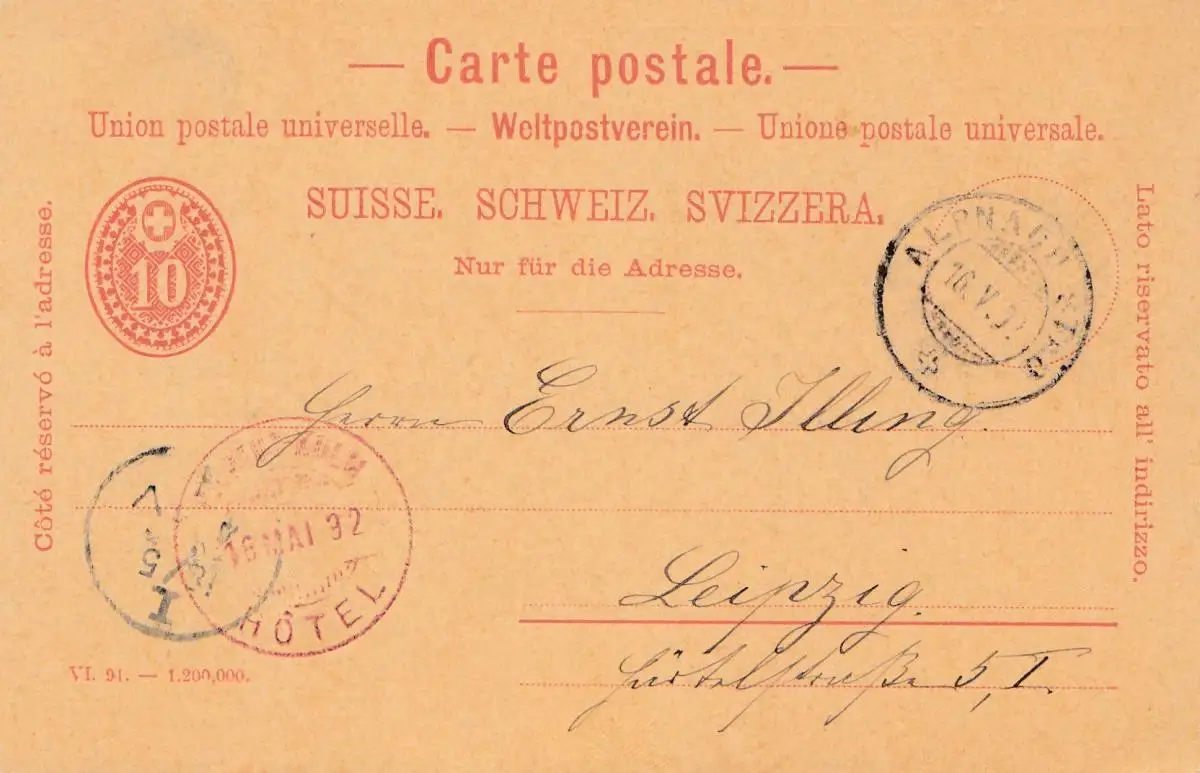 — Carte postale. —
Union postale universelle. — Weltpostverein. — Unione postale universale.
SUISSE. SCHWEIZ. SVIZZERA.
Nur für die Adresse.
10
Côté réservé à l'adresse.
Lato riservato all' indirizzo.
ALPNACH STAD
16.V.
Herrn Ernst Illing.
16 MAI 92
HÔTEL
V
5
I
Leipzig.
5, I.
VI. 91. — 1.200,000.